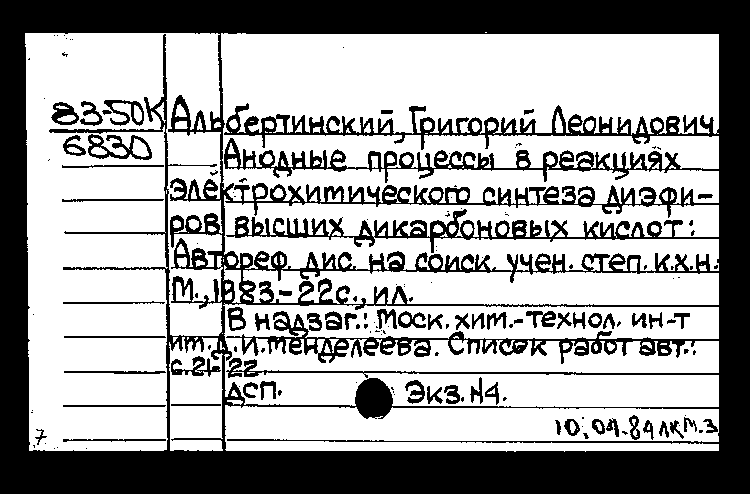 83-50К Альбертинский, Григорий Леонидович.
6830 Анодные процессы в реакциях
электрохимического синтеза диэфи-
ров высших дикарбоновых кислот:
Автореф. дис. на соиск. учен. степ. к.х.н.
М., 1983.-22с., ил.
В надзаг.: Моск. хим.-технол. ин-т
им. Д.И.Менделеева. Список работ авт.:
с.21-22
ДСП. Экз.№4.
7 10.04.84